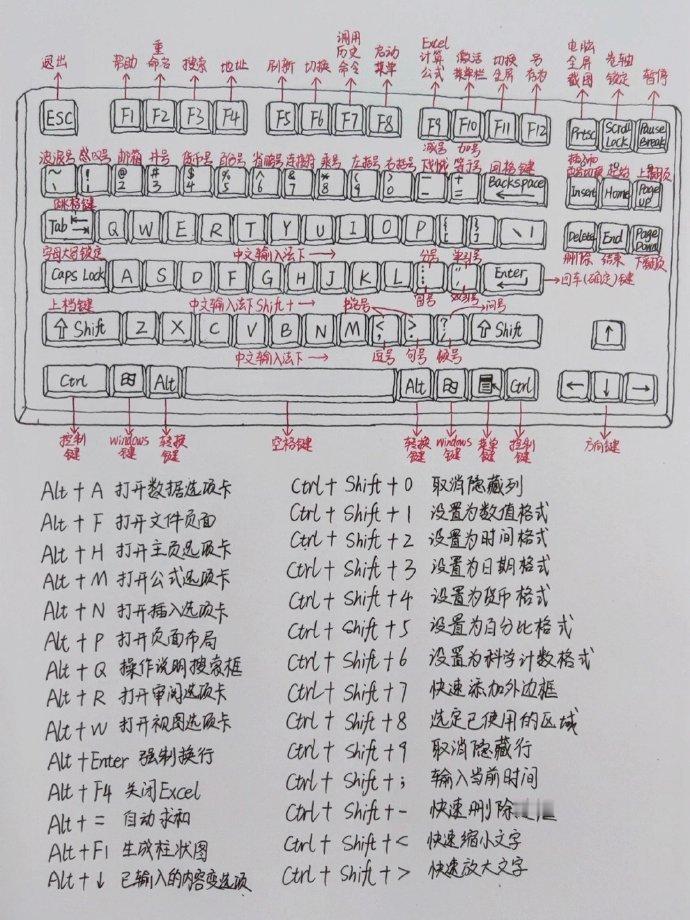 退出 帮助 重命名 搜索 地址 刷新 切换 调用历史命令 启动菜单 Excel计算公式 激活菜单栏 切换全屏 另存为 电脑全屏截图 先轴锁定 暂停
ESC F1 F2 F3 F4 F5 F6 F7 F8 F9 F10 F11 F12 Prtsc Scroll Lock Pause Break
波浪号 感叹号 邮箱 井号 货币号 百分号 省略号 连接符 乘号 左括号 右括号 减号 下划线 加号 等于号 回格键
~ ! @ 2 # 3 $ 4 % 5 ^ 6 & 7 * 8 ( 9 ) 0 - + = Backspace Insert Home Page UP
起始 上翻页
跳格键
Tab Q W E R T Y U I O P { [ } ] \ | Delete End Page Down
删除 结束 下翻页
字母大写锁定 中文输入法下→ 分号 单引号
Caps Lock A S D F G H J K L : ; " ' Enter
回车(确定)键
上档键 中文输入法下Shift+→ 书名号 冒号 双引号 问号
⇧ Shift Z X C V B N M < , > . ? / ⇧ Shift ↑
中文输入法下→ 逗号 句号 顿号
Ctrl Alt Alt Ctrl ← ↓ →
控制键 windows键 转换键 空格键 转换键 windows键 菜单键 控制键 方向键
Alt + A 打开数据选项卡
Alt + F 打开文件页面
Alt + H 打开主页选项卡
Alt + M 打开公式选项卡
Alt + N 打开插入选项卡
Alt + P 打开页面布局
Alt + Q 操作说明搜索框
Alt + R 打开审阅选项卡
Alt + W 打开视图选项卡
Alt + Enter 强制换行
Alt + F4 关闭Excel
Alt + = 自动求和
Alt + F1 生成柱状图
Alt + ↓ 已输入的内容变选项
Ctrl + Shift + 0 取消隐藏列
Ctrl + Shift + 1 设置为数值格式
Ctrl + Shift + 2 设置为时间格式
Ctrl + Shift + 3 设置为日期格式
Ctrl + Shift + 4 设置为货币格式
Ctrl + Shift + 5 设置为百分比格式
Ctrl + Shift + 6 设置为科学计数格式
Ctrl + Shift + 7 快速添加外边框
Ctrl + Shift + 8 选定已使用的区域
Ctrl + Shift + 9 取消隐藏行
Ctrl + Shift + ; 输入当前时间
Ctrl + Shift + - 快速删除
Ctrl + Shift + < 快速缩小文字
Ctrl + Shift + > 快速放大文字